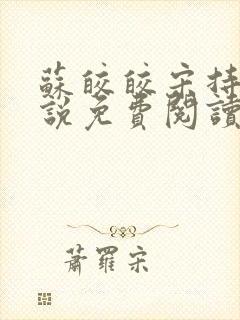 蘇皎皎宋持
說免費閱讀
蕭羅宋